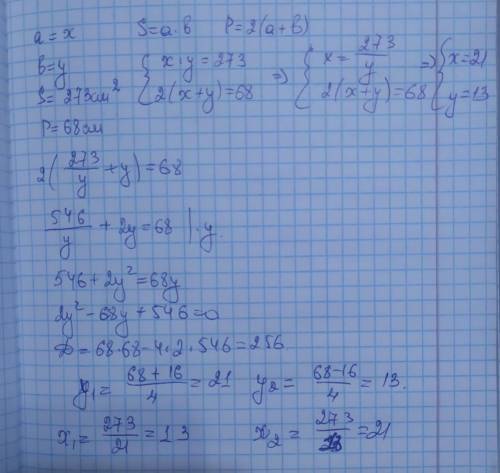 a = x S = a · b P = 2(a + b)
b = y { x · y = 273 => { x = 273/y => { x = 21
S = 273 см² { 2(x+y) = 68 { 2(x+y) = 68 { y = 13
P = 68 см
2(273/y + y) = 68
546/y + 2y = 68 | · y.
546 + 2y² = 68y
2y² - 68y + 546 = 0
D = 68 · 68 - 4 · 2 · 546 = 256
y₁ = (68 + 16)/4 = 21 y₂ = (68 - 16)/4 = 13.
x₁ = 273/21 = 13 x₂ = 273/13 = 21